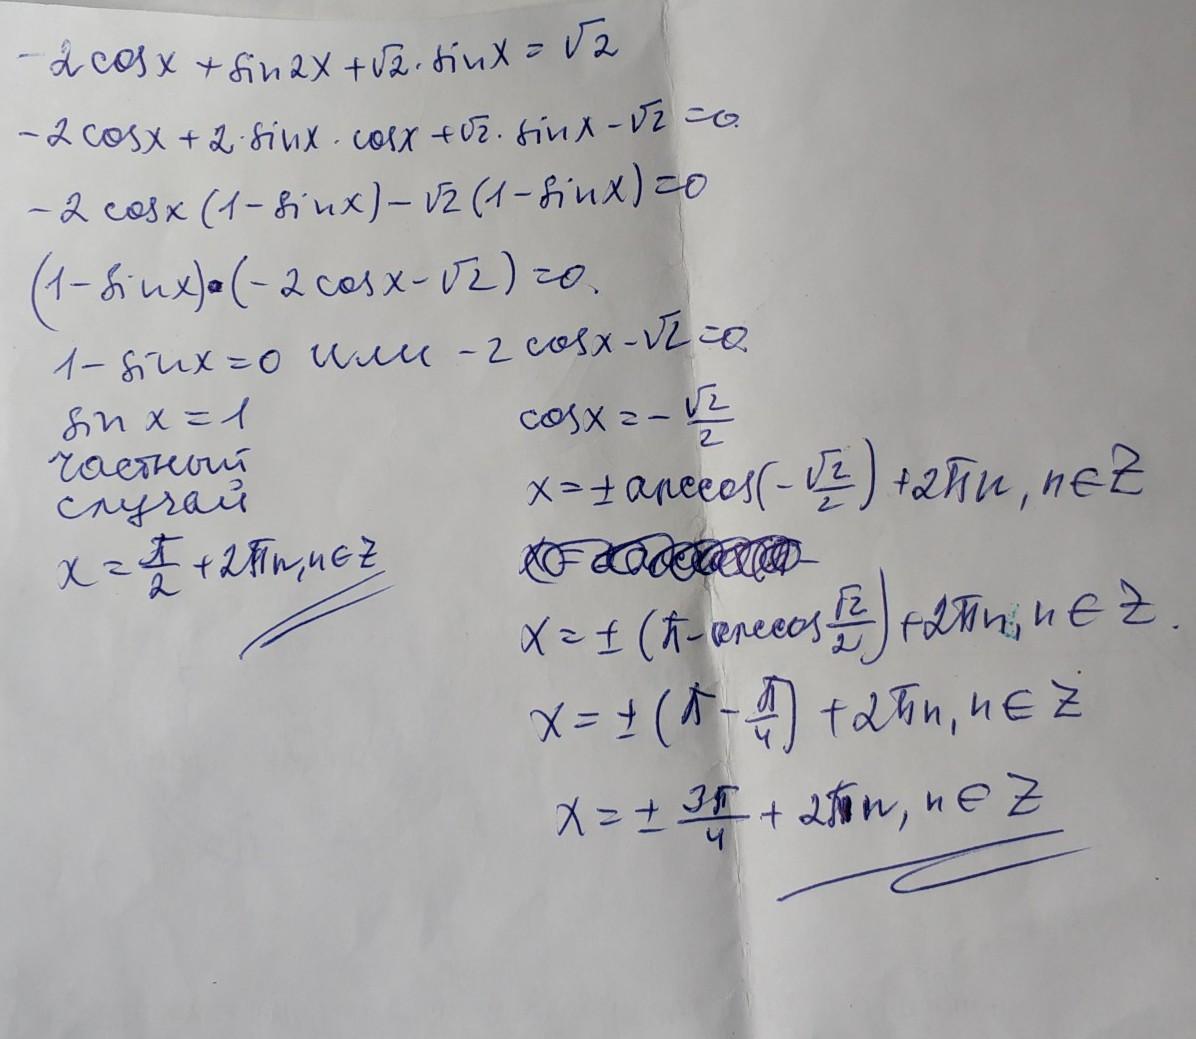 -2cosx + sin2x + √2 · sinx = √2
-2cosx + 2·sinx · cosx + √2 · sinx - √2 = 0.
-2cosx (1-sinx) - √2 (1-sinx) = 0
(1-sinx)·(-2cosx-√2) = 0.
1-sinx = 0 или -2cosx-√2 = 0.
sin x = 1
частный
случай
x = π/2 + 2πn, n∈Z
cosx = -√2/2
x = ± arccos(-√2/2) + 2πn, n∈Z
x = ± (π - arccos √2/2) + 2πn, n∈Z.
x = ± (π - π/4) + 2πn, n∈Z
x = ± 3π/4 + 2πn, n∈Z